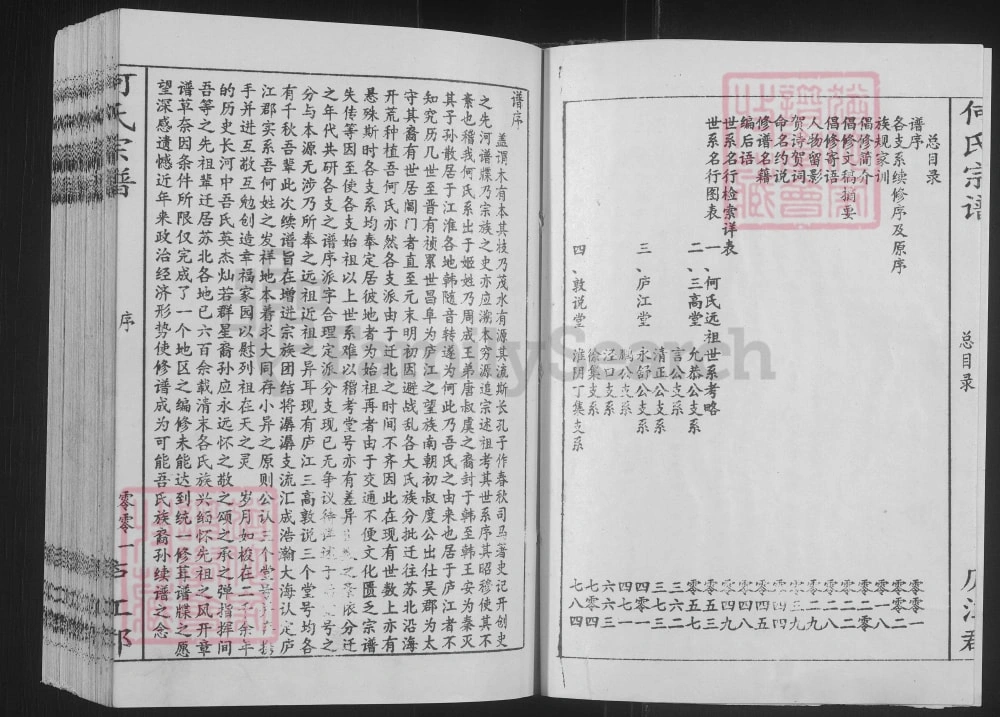 何氏宗谱
庐江郡
总目录
总目录
谱序 零零一
各支系续修序及原序 零零二
族规家训 零一八
倡修简介
倡修文稿摘要
倡修寄语
人物留影
贺诗贺词 零三九
命名约说 零四四
修谱名籍 零四五
编后语 零四九
世系名行图表 零五三
世系名行检索详表 零五七
一、何氏远祖世系考略
二、三高堂 允恭公支系
言公支系
三、庐江堂 清正公支系
永舒公支系
鹏公支系
泾口支系 六六三
徐集支系 七零四
四、敦说堂 淮阴丁集支系 七八四
谱序
盖谓木有本其枝乃茂水有源其流斯长孔子作春秋司马著史记开创史
之先河谱牒乃宗族之史亦应溯本穷源追宗述祖考其世系序其昭穆使其不
紊也稽我何氏系出于姬姓乃周成王弟唐叔虞之裔封于韩至韩王安为秦灭
其子孙散居于江淮各地韩随音转遂为何此乃吾氏之由来也居于庐江者不
知究历几世至晋有祯累世昌阜为庐江之望族南朝初叔度公出仕吴郡为太
守其裔有世居阊门者直至元末明初因避战乱各大氏族分批迁往苏北沿海
开荒种植吾何氏亦然各支派由于迁北之时间不齐因此在现有世数上亦有
悬殊斯时各支系均奉定居彼地者为始祖再者由于交通不便文化匮乏宗谱
失传等因至使各支始祖以上世系难以稽考堂号亦有差异 依分迁
之年代共研各支之谱序派字合理定派分支现已无争议 号之
分与本源无涉乃所奉之远祖近祖之异耳现有庐江三高敦说三个堂号均各
有千秋吾辈此次续谱旨在增进宗族团结将潺潺支流汇成浩瀚大海认定庐
江郡实系吾何姓之发祥地本着求大同存小异之原则公认三个堂号
手并进互敬互勉创造幸福家园以慰列祖在天之灵 岁月如梭在二千余年
的历史长河中吾氏英杰灿若群星裔孙应永远怀之敬之颂之承之弹指挥间
吾等之先祖辈迁居苏北各地已六百余载清末各氏族兴缅怀先祖之风开章
谱草奈因条件所限仅完成了一个地区之编修未能达到统一修葺谱牒之愿
望深感遗憾近年来政治经济形势使修谱成为可能吾氏族裔孙续谱之念
何氏宗谱
序
零零一
庐江郡
FamilySearch